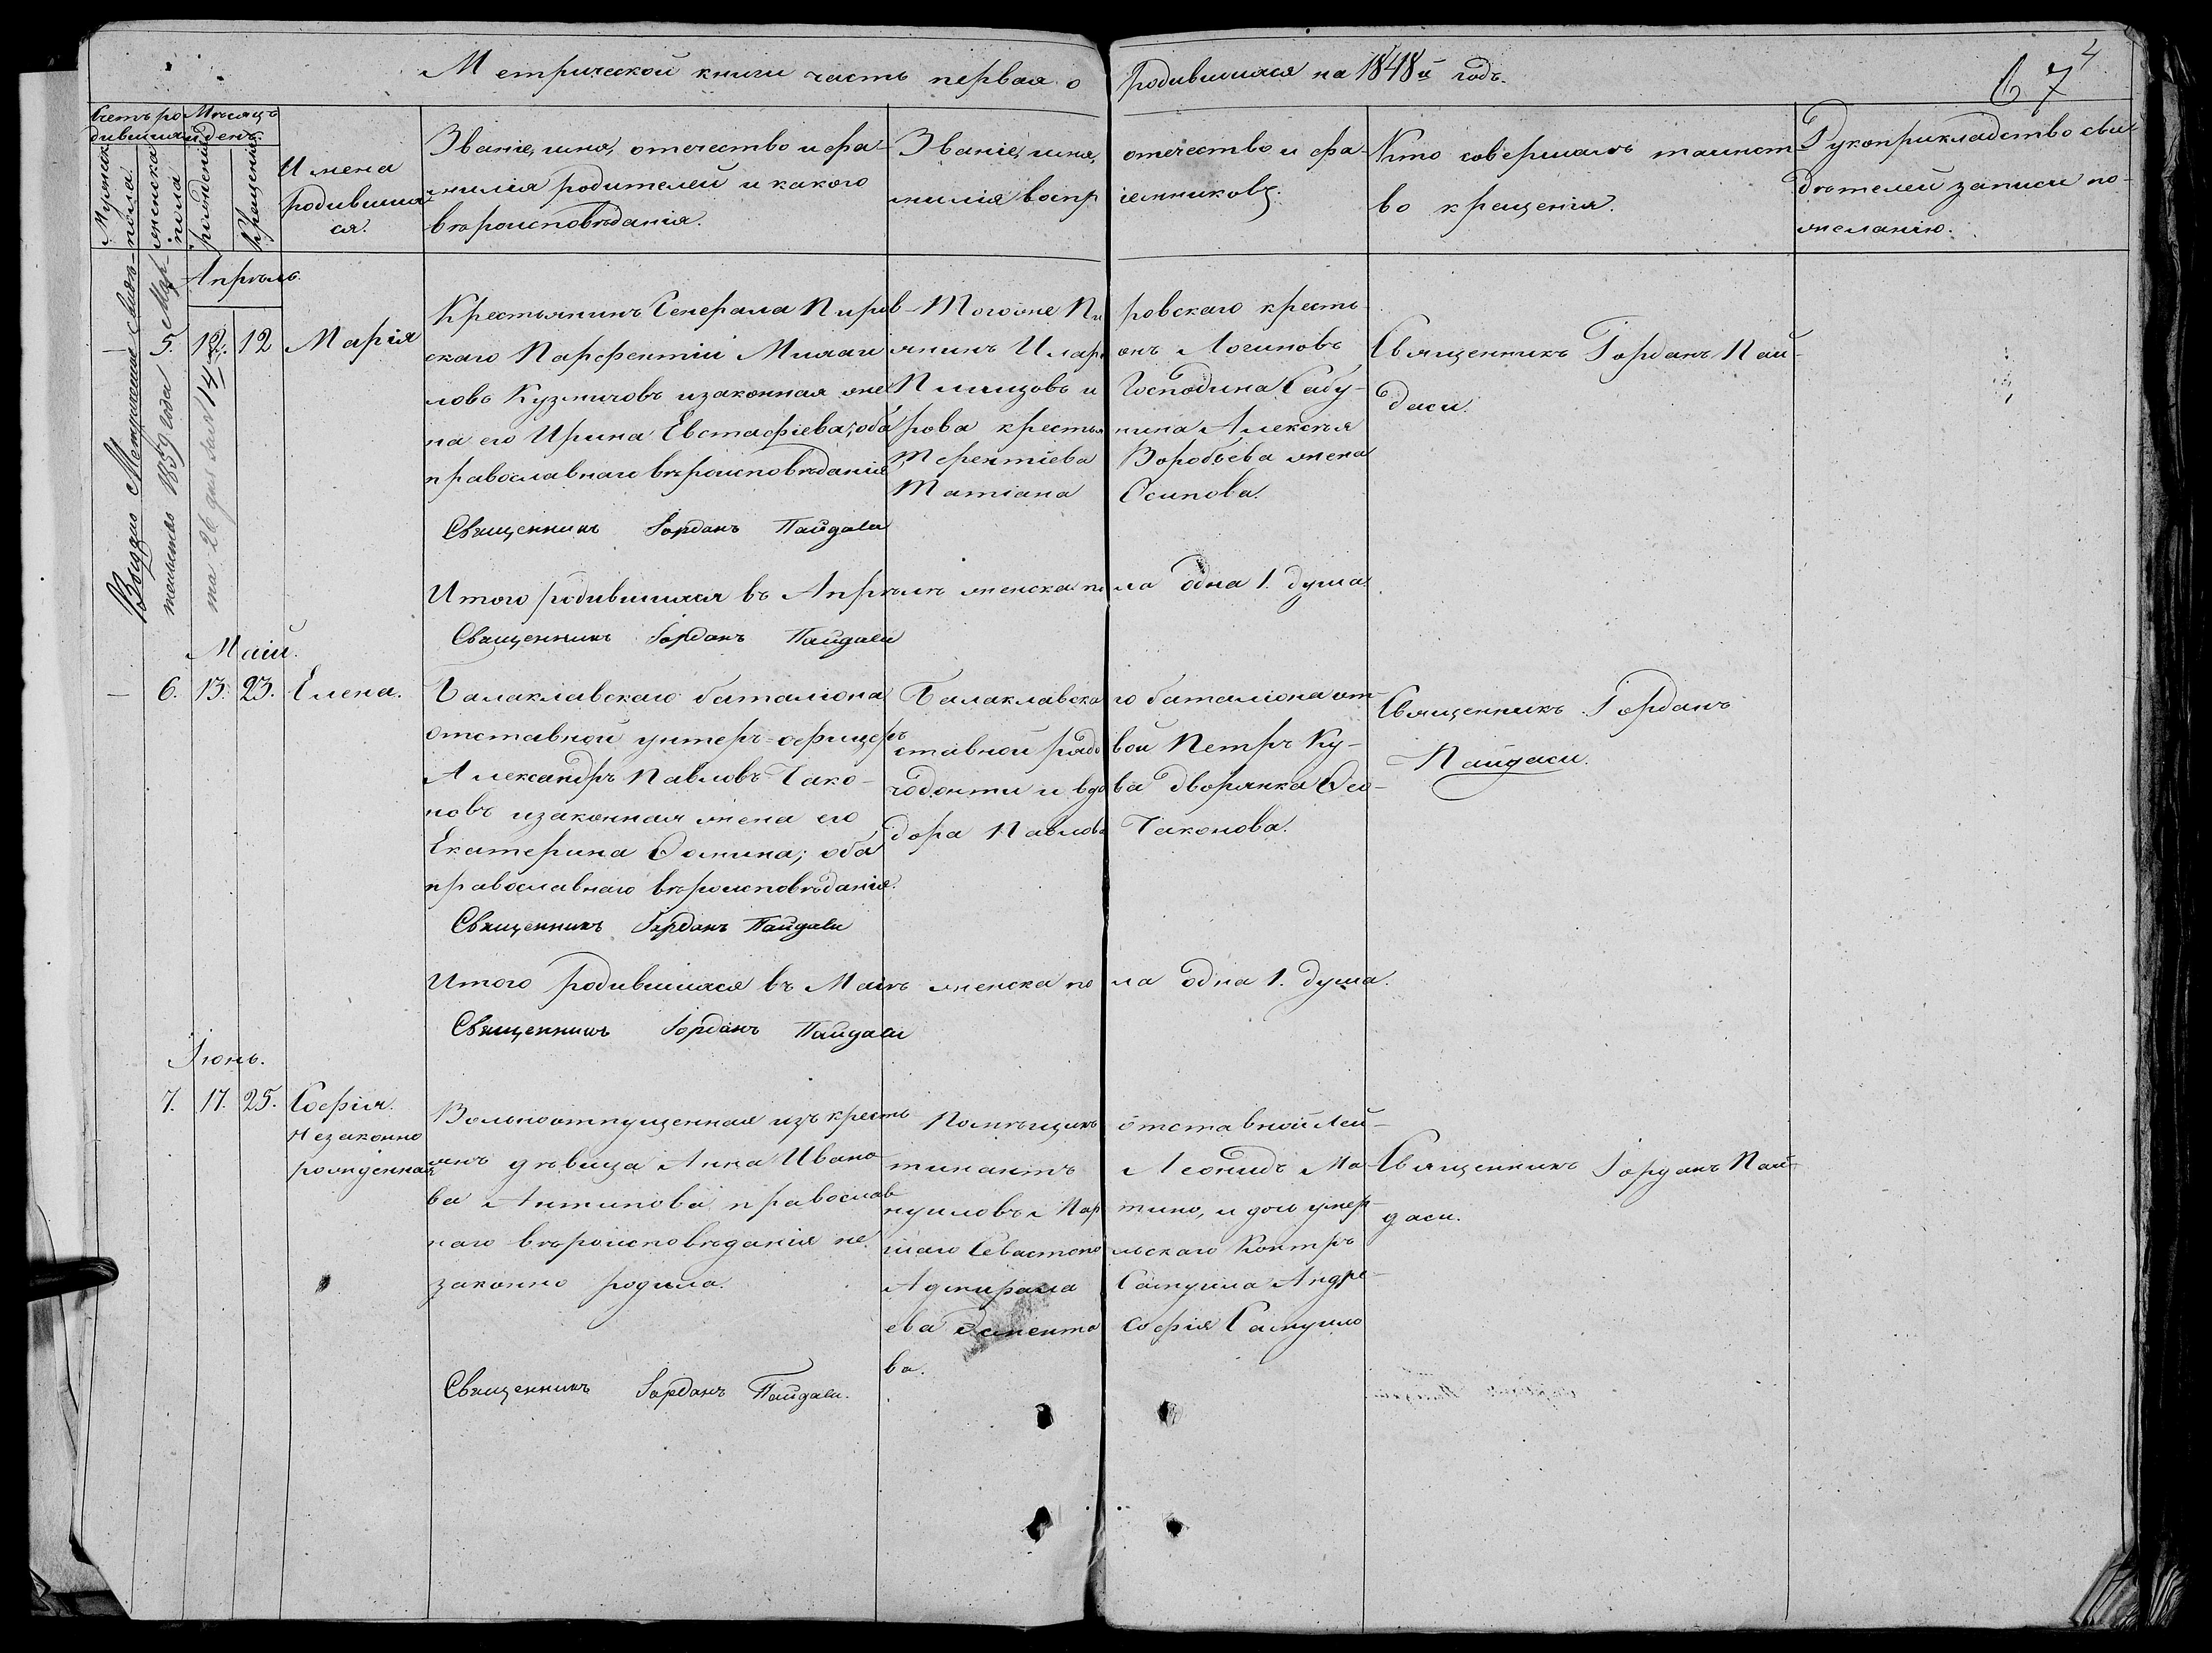 Метрической книги часть первая о родившихся на 1848й годъ.
67
4
Счетъ родившихся
Мѣсяцъ и день.
Мужска пола.
женска пола
рожденія
Крещенія
Имена родившихся.
Званіе, имя, отечество и фа-
милія родителей и какого
вѣроисповѣданія.
Званіе, имя, отечество и фа-
милія воспріемниковъ.
Кто совершалъ таинст
во крещенія.
Рукоприкладство сви-
дѣтелей записи по-
желанію.
Апрѣль.
— 5. 12. 12 Марія
Крестьянинъ Генерала Пиров-
скаго Парфентій Михаи
ловъ Кузмичовъ и законная же
на его Ирина Евстафіева; оба
православнаго вѣроисповѣданія
Священникъ Іорданъ Пайдаси
Тогоже Пировскаго кресть
янинъ Иларіонъ Логиновъ
и Господина Сабу-
рова крестьянина Алексѣя
Терентіева Воробьева жена
Татіана Осипова.
Священникъ Іорданъ Пай-
даси.
Итого родившихся въ Апрѣлѣ женска пола одна 1. душа.
Священникъ Іорданъ Пайдаси
года
№ 14
Май.
— 6. 13. 23. Елена.
Балаклавскаго баталіона
отставной унтеръ-офицеръ
Александръ Павловъ Чако-
новъ и законная жена его
Екатерина Ѳомина; оба
православнаго вѣроисповѣданія.
Священникъ Іорданъ Пайдаси
Балаклавскаго баталіона от-
ставной рядовой Петръ Ку-
чодонти и вдова дворянка Ѳео-
дора Павлова Чаконова.
Священникъ Іорданъ
Пайдаси.
Итого родившихся въ Маіѣ женска пола одна 1. душа.
Священникъ Іорданъ Пайдаси
Іюнь.
7. 17. 25. Софія.
Незаконно
рожденная
Вольноотпущенная изъ кресть
янъ дѣвица Анна Ивано
ва Антипова православ
наго вѣроисповѣданія не
законно родила.
Священникъ Іорданъ Пайдаси.
Помѣщикъ отставной Лей-
тинантъ Леонидъ Ма-
нуиловъ Мартино, и дочь умер-
шаго Севастопольскаго Контръ
Адмирала Самуила Андре-
ева Софія Самуило
ва.
Священникъ Іорданъ Пай-
даси.